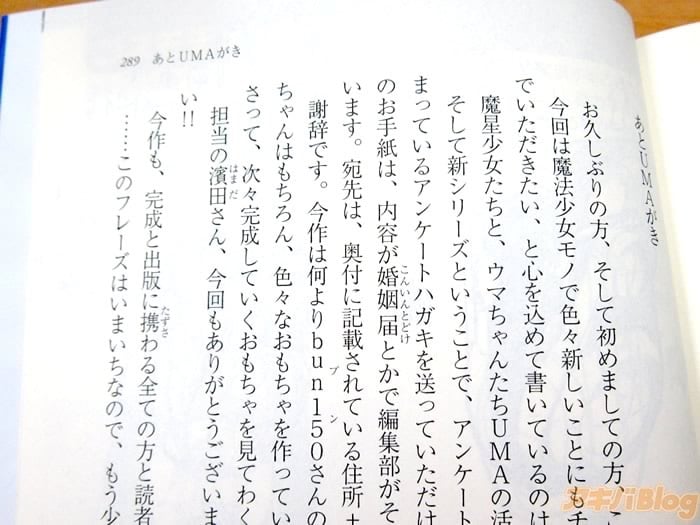 289 あとUMAがき
あとUMAがき
お久しぶりの方、そして初めましての方、こ
今回は魔法少女モノで色々新しいことにもチ
でいただきたい、と心を込めて書いているのは
魔星少女たちと、ウマちゃんたちUMAの活
そして新シリーズということで、アンケート
まっているアンケートハガキを送っていただけ
のお手紙は、内容が婚姻届とかで編集部がそ
こんいんとどけ
います。宛先は、奥付に記載されている住所+
謝辞です。今作は何よりbun150さんの
ブン
ちゃんはもちろん、色々なおもちゃを作ってい
さって、次々完成していくおもちゃを見てわく
担当の濱田さん、今回もありがとうございま
はまだ
い!!
今作も、完成と出版に携わる全ての方と読者
たずさ
……このフレーズはいまいちなので、もう少
アキバBlog